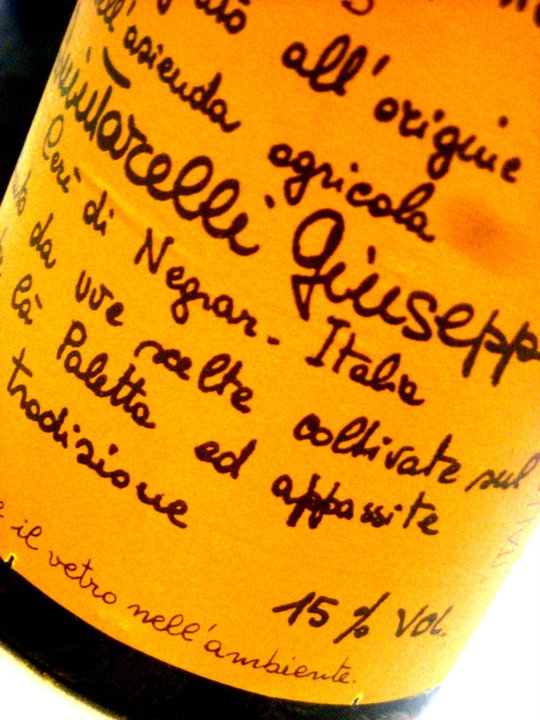 all'origine
dell'azienda agricola
uintarelli Giusepp
Cerè di Negrar - Italia
da uve scelte coltivate sul
là Paletta ed appassite
tradizione
15 % VOL.
e il vetro nell'ambiente.